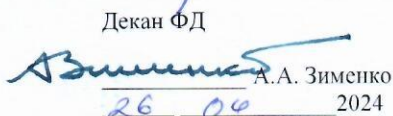 Декан ФД
А.А. Зименко
26 04 2024